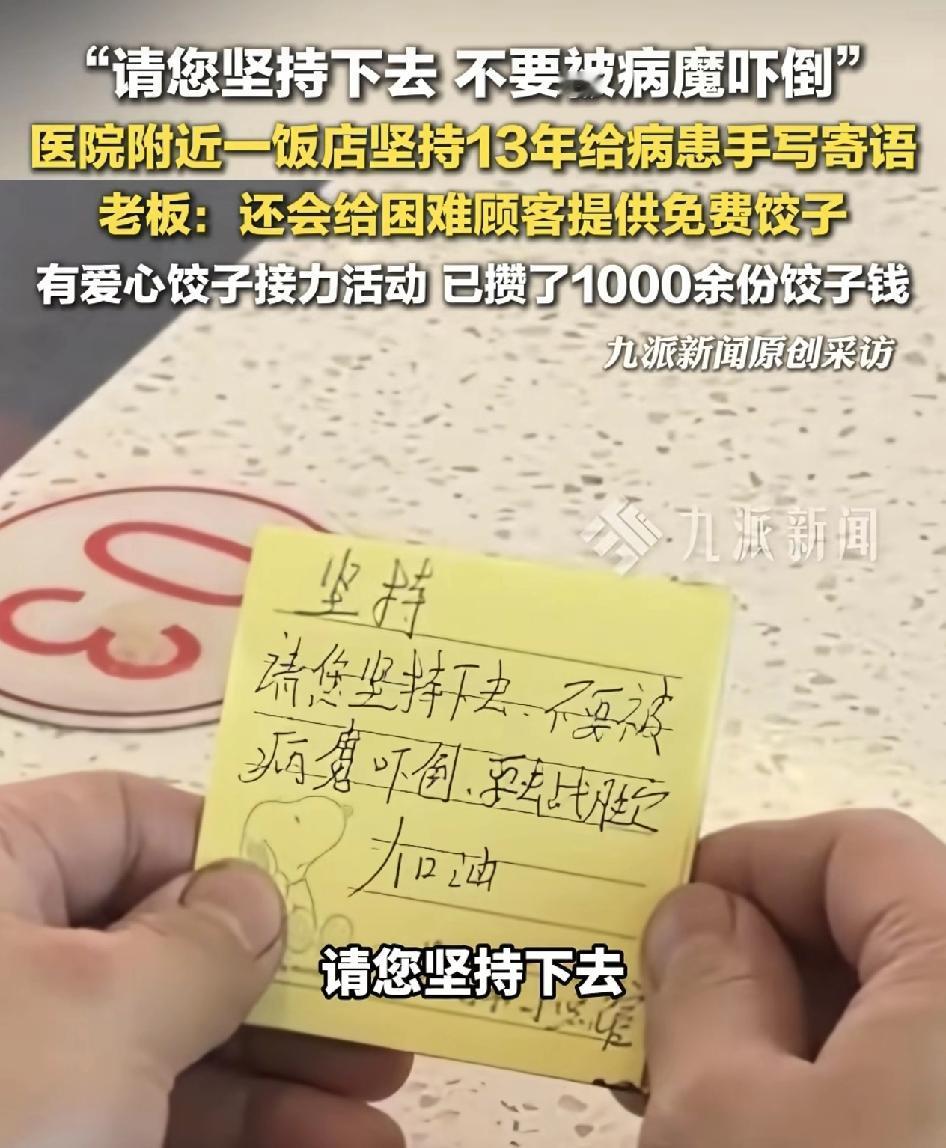 “请您坚持下去 不要被病魔吓倒”
医院附近一饭店坚持13年给病患手写寄语
老板：还会给困难顾客提供免费饺子
有爱心饺子接力活动 已攒了1000余份饺子钱
九派新闻原创采访
九派新闻
03
坚持
请您坚持下去、不要被
病魔吓倒、要去战胜它
加油
请您坚持下去